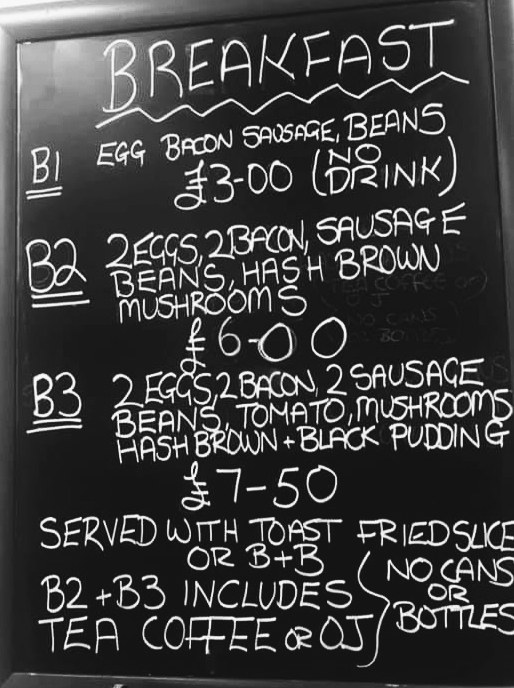 BREAKFAST
B1 EGG BACON SAUSAGE, BEANS
£3-00 (NO DRINK)
B2 2 EGGS, 2 BACON, SAUSAGE
BEANS, HASH BROWN
MUSHROOMS
£6-00
B3 2 EGGS, 2 BACON, 2 SAUSAGE
BEANS, TOMATO, MUSHROOMS
HASH BROWN + BLACK PUDDING
£7-50
SERVED WITH TOAST FRIED SLICE
OR B+B
B2 + B3 INCLUDES
TEA COFFEE OR OJ
NO CANS
OR
BOTTLES